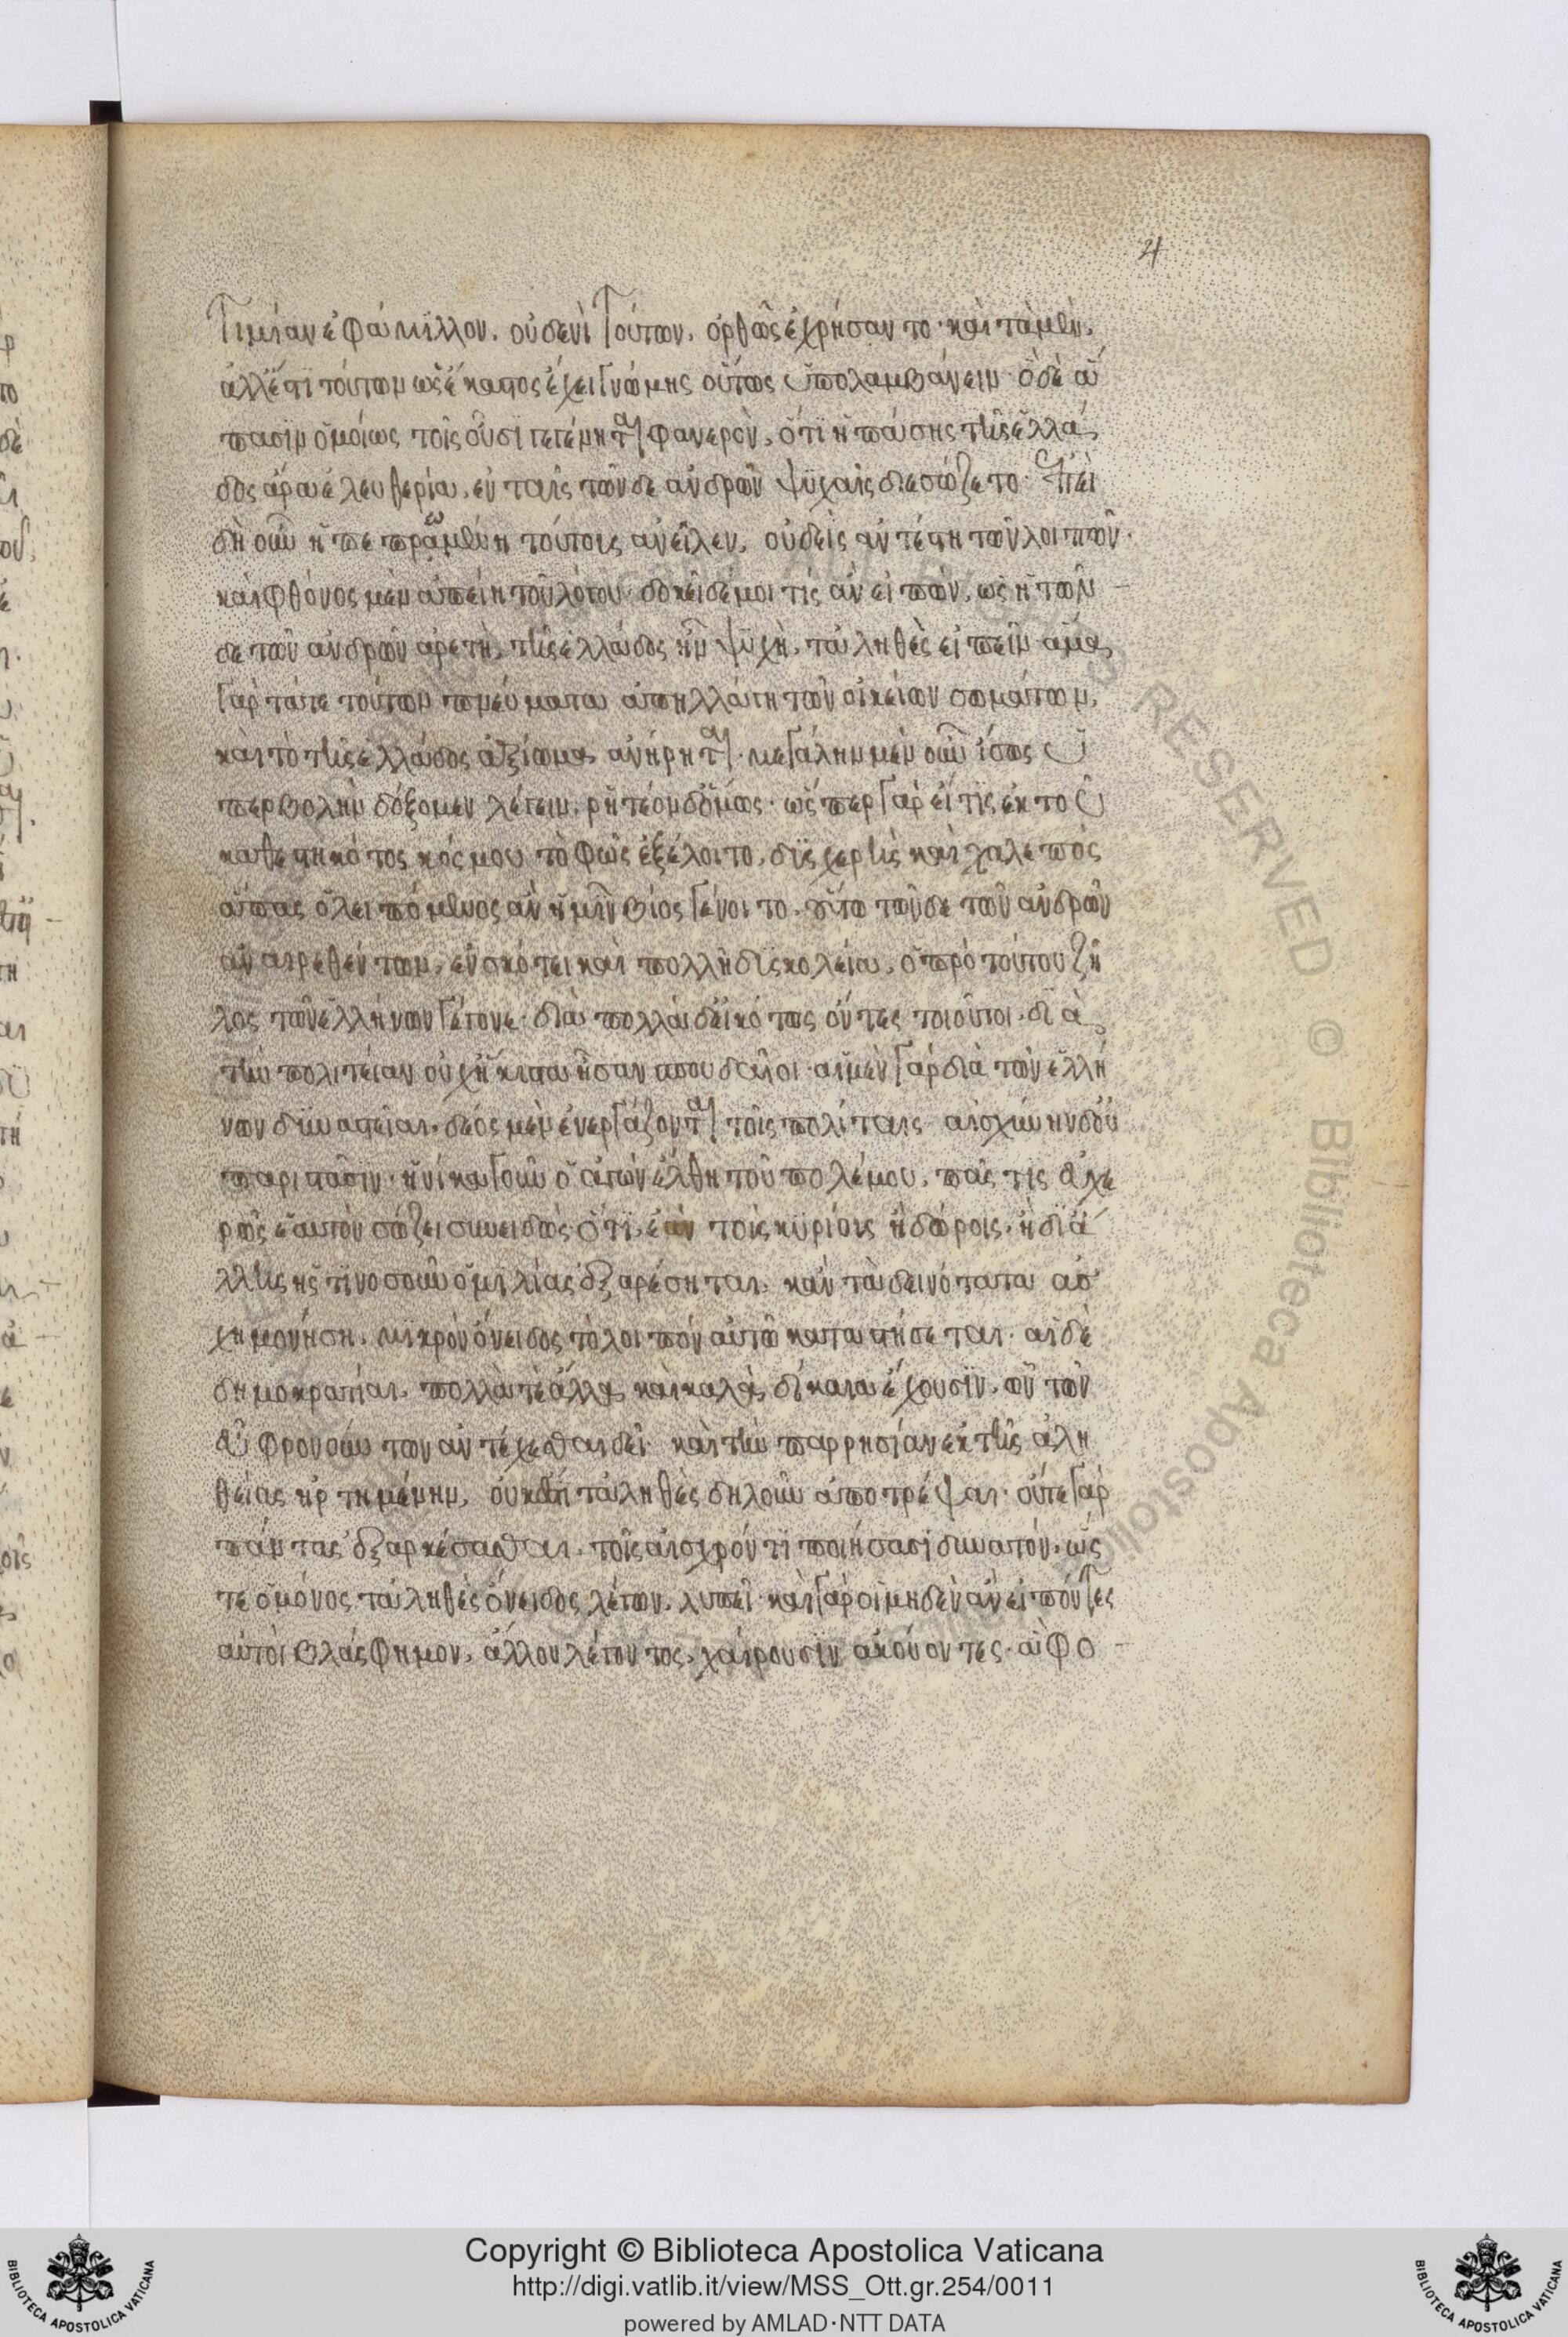 4
τιμίαν ἐφάμιλλον. οὐδενὶ τούτων. ὀρθῶς ἐχρήσαντο· καὶ τὰ μὲν.
ἄλλ' ἔτι τούτων ὡς ἕκαστος ἔχει γνώμης οὕτως ὑπολαμβάνειν· ὃ δὲ ἅ
πασιν ὁμοίως τοῖς οὖσι γεγένηται φανερὸν, ὅτι ἡ πάσης τῆς ἑλλά
δος ἄρα ἐλευθερία, ἐν ταῖς τῶνδε ἀνδρῶν ψυχαῖς διεσώζετο· ἐπει
δὴ οὖν ἡ πεπρωμένη τούτοις ἀνεῖλεν, οὐδεὶς ἀντέστη τῶν λοιπῶν·
καὶ φθόνος μὲν ἀπείη τοῦ λόγου· δοκεῖ δέ μοι τίς ἂν εἰπὼν, ὡς ἡ τῶν
δε τῶν ἀνδρῶν ἀρετὴ, τῆς ἑλλάδος ἦν ψυχὴ, τἀληθὲς εἰπεῖν· ἅμα
γὰρ τάτε τούτων πνεύματα ἀπηλλάγη τῶν οἰκείων σωμάτων,
καὶ τὸ τῆς ἑλλάδος ἀξίωμα ἀνήρηται· μεγάλην μὲν οὖν ἴσως ὑ
περβολὴν δόξομεν λέγειν. ῥητέον δ' ὅμως· ὥσπερ γὰρ εἴ τις ἐκ τοῦ
καθεστηκότος κόσμου τὸ φῶς ἐξέλοιτο, δυσχερὴς καὶ χαλεπὸς
ἅπας ὁ λειπόμενος ἂν ἡμῖν βίος γένοιτο. οὕτω τῶνδε τῶν ἀνδρῶν
ἀναιρεθέντων, ἐν σκότει καὶ πολλῇ δυσκολεία, ὁ πρὸ τούτου ζῆ
λος τῶν ἑλλήνων γέγονε· διὰ πολλὰ δ' εἰκότως ὄντες τοιοῦτοι. διὰ
τὴν πολιτείαν οὐχ ἥκιστα ἦσαν σπουδαῖοι· αἱ μὲν γὰρ διὰ τῶν ἑλλή
νων δυναστεῖαι. δέος μὲν ἐνεργάζονται τοῖς πολίταις· αἰσχύνην δ' οὐ
παριστᾶσιν· ἡνίκα γοῦν ὁ ἀγὼν ἔλθῃ τοῦ πολέμου. πᾶς τις εὐχε
ρῶς ἑαυτὸν σώζει συνειδὼς· ὅτι, ἐὰν τοῖς κυρίοις ἢ δώροις. ἢ δι' ἄ
λλης ἧς τινοσοῦν ὁμιλίας ἐξαρέσηται. κἂν τὰ δεινότατα ἀσ
χημονήσῃ. μικρὸν ὄνειδος τὸ λοιπὸν αὐτῷ καταστήσεται· αἱ δὲ
δημοκρατίαι. πολλά τε ἄλλα, καὶ καλὰ, δίκαια ἔχουσιν. ὧν τὸν
εὖ φρονοῦντα ἀντέχεσθαι δεῖ· καὶ τὴν παρρησίαν ἐκ τῆς ἀλη
θείας ἠρτημένην, οὐκ ἔστι τἀληθὲς δηλοῦν ἀποτρέψαι· οὔτε γὰρ
πάντας ἐξαρκέσασθαι. τοῖς αἰσχρόν τι ποιήσασι δυνατόν. ὥς
τε ὁ μόνος τἀληθὲς ὄνειδος λέγων. λυπεῖ· καὶ γὰρ οἱ μηδὲν ἂν εἰπόντες
αὐτοὶ βλάσφημον, ἄλλου λέγοντος. χαίρουσιν ἀκούοντες· ἃ φο
Copyright © Biblioteca Apostolica Vaticana
http://digi.vatlib.it/view/MSS_Ott.gr.254/0011
powered by AMLAD·NTT DATA